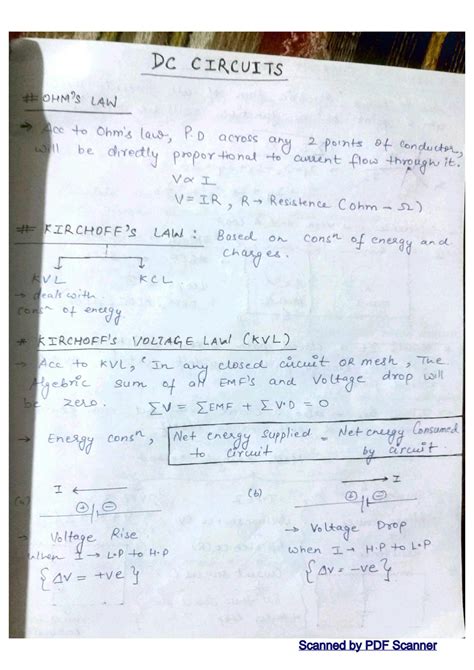 DC CIRCUITS
# OHM'S LAW
→ Acc to Ohm's law, P.D across any 2 points of conductor,
will be directly proportional to current flow through it.
V ∝ I
V = IR, R → Resistence (ohm - Ω)
# KIRCHOFF'S LAW : Based on consⁿ of energy and
charges.
KVL KCL
→ deals with
consⁿ of energy
* KIRCHOFF'S VOLTAGE LAW (KVL)
→ Acc to KVL, "In any closed circuit OR mesh, The
Algebric sum of all EMF's and Voltage drop will
be zero. ΣV = ΣEMF + ΣV.D = 0
→ Energy consⁿ, Net energy supplied = Net energy Consumed
to circuit by circuit.
I ← I →
(a) + - (b) + -
→ Voltage Rise → Voltage Drop
when I → L.P to H.P when I → H.P to L.P
{ΔV = +ve} {ΔV = -ve}
Scanned by PDF Scanner